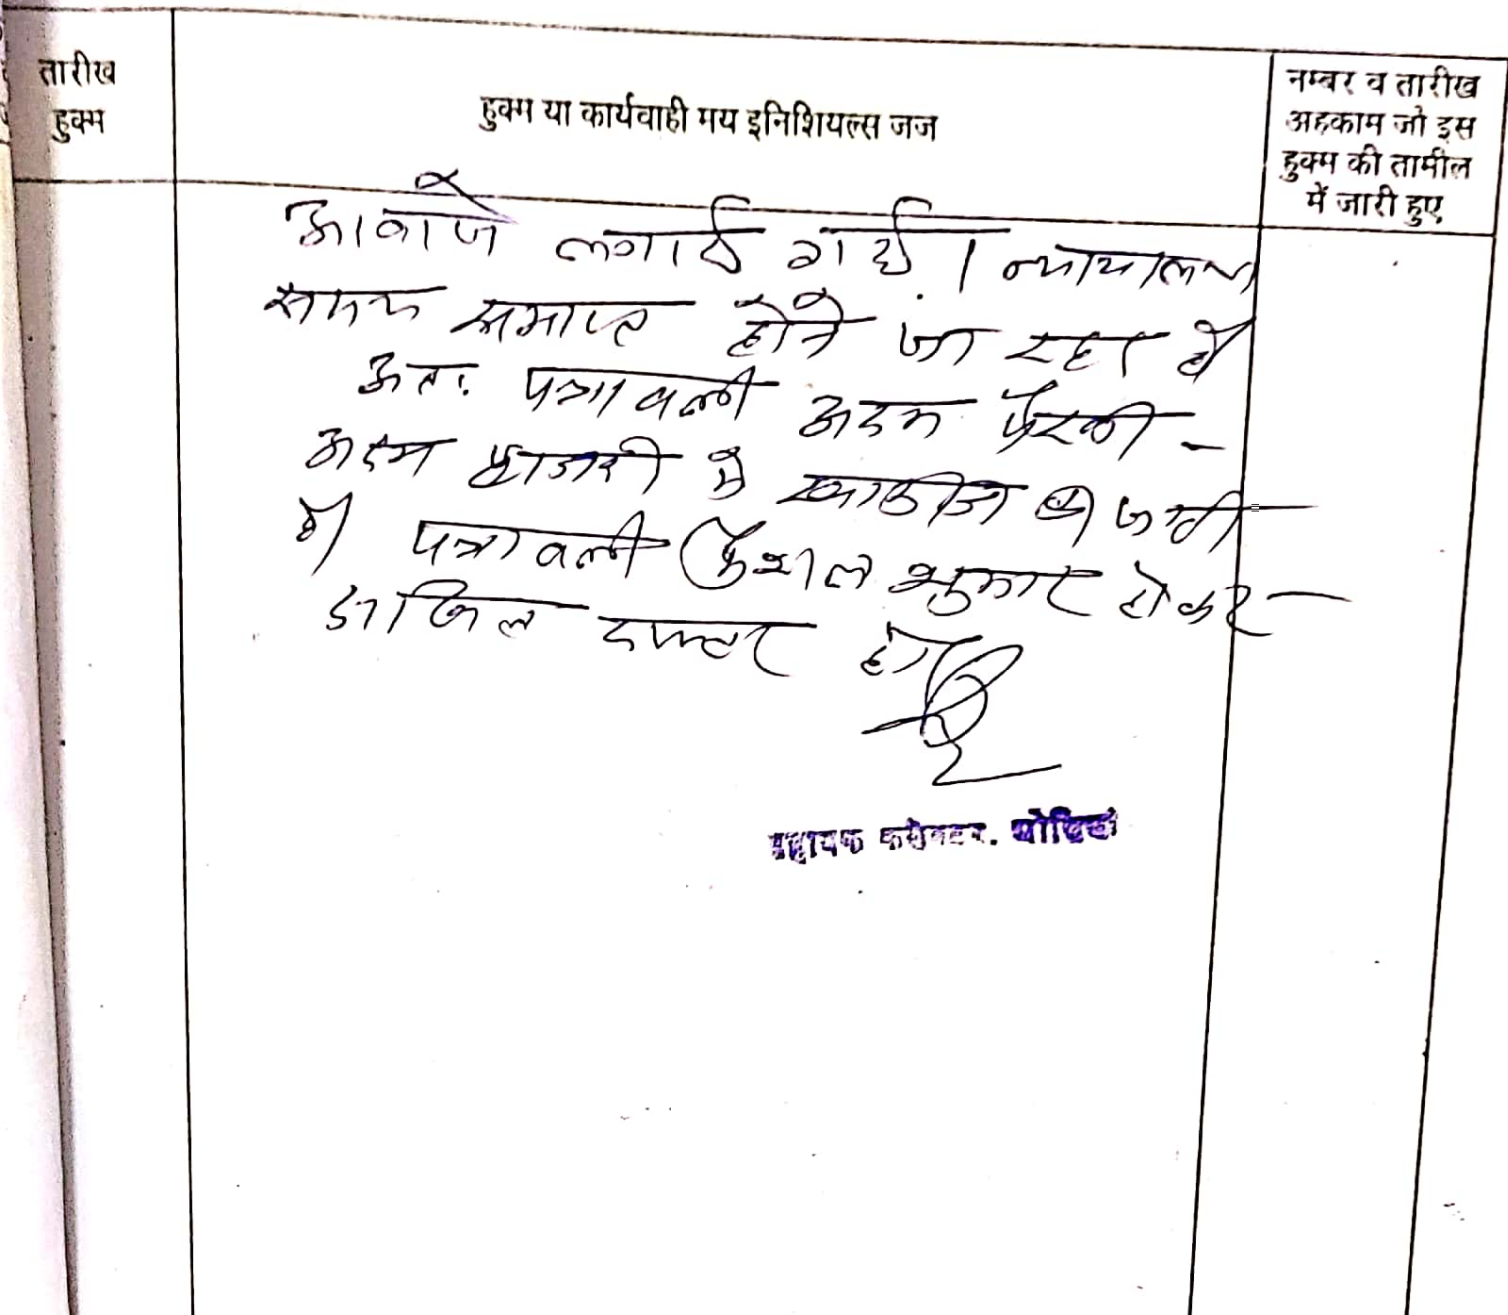 तारीख
हुक्म
हुक्म या कार्यवाही मय इनिशियल्स जज
नम्बर व तारीख
अहकाम जो इस
हुक्म की तामील
में जारी हुए
आवाजे लगाई गई। न्यायालय
समय समाप्त होने जा रहा है
अतः पत्रावली अदम पैरवी -
अदम हाजरी मे खारीज की जाती
है। पत्रावली फैशल शुमार होकर
दाखिल दफ्तर हो
सहायक कलेक्टर,